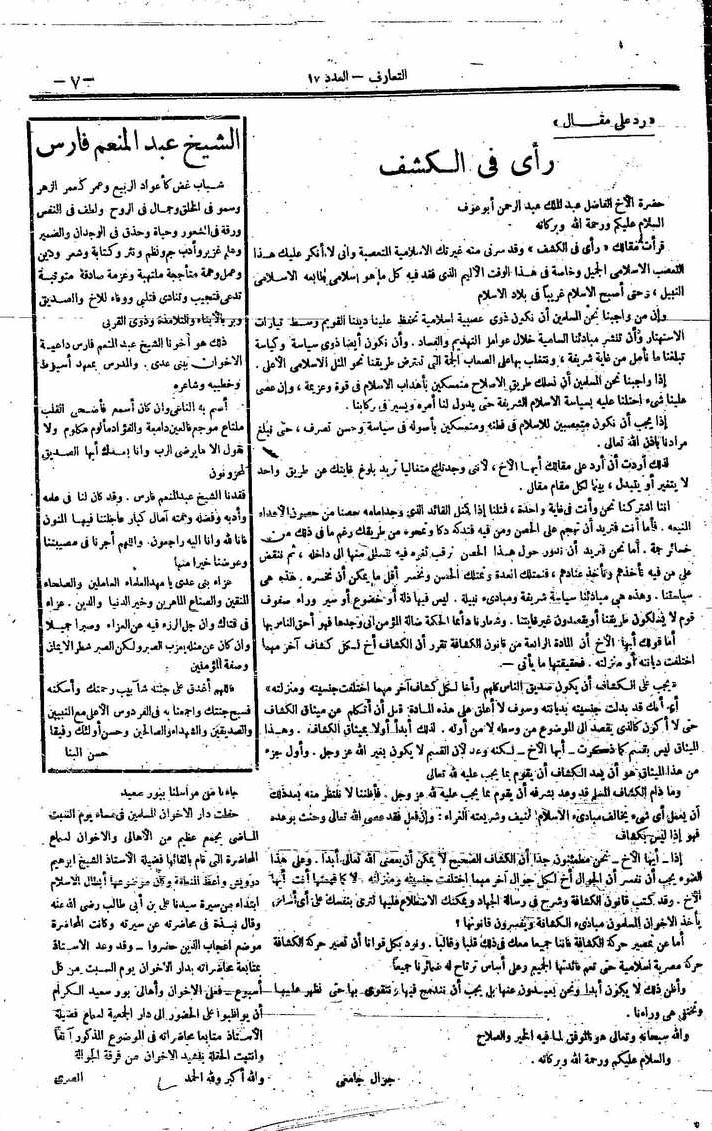 التعارف — العدد ١٧
— ٧ —
« رد على مقـــال »
رأى فى الـكشف
حضرة الأخ الفاضل عبد الملك عبد الرحمن أبو عوف
السلام عليكم ورحمة الله وبركاته
قرأت مقالك « رأى فى الكشف » وقد سرنى منه غيرتك الاسلامية المتعصبة وانى لا أنكر عليك هذا
التعصب الاسلامى الجميل وخاصة فى هذا الوقت الأليم الذى فقد فيه كل ما هو اسلامى طابعه الاسلامى
النبيل ، وحتى أصبح الاسلام غريباً فى بلاد الاسلام
وإن من واجبنا نحن المسلمين أن نكون ذوى عصبية اسلامية تحفظ علينا ديننا القويم وسط تيارات
الاستهتار وأن ننشر مبادئنا السامية خلال عوامل التهديم والفساد . وأن نكون أيضا ذوى سياسة وكياسة
تبلغنا ما نأمل من غاية شريفة ، ونتغلب بها على الصعاب الجمة التى تعترض طريقنا نحو المثل الاسلامى الأعلى .
إذا واجبنا نحن المسلمين أن نسلك طريق الاصلاح متمسكين بأهداب الاسلام فى قوة وعزيمة ، وإن عصى
علينا شىء احتلنا عليه بسياسة الاسلام الشريفة حتى يدول لنا أمره ويسير فى ركابنا .
إذا يجب أن نكون متعصبين للاسلام فى فطنة ومتمسكين بأصوله فى سياسة وحسن تصرف ، حتى نبلغ
مرادنا باذن الله تعالى .
لذلك أردت أن أرد على مقالك أيها الأخ ، لأننى وجدتك متغاليا تريد بلوغ غايتك عن طريق واحد
لا يتغير أو يتبدل ، بينما لكل مقام مقال .
اننا اشتركنا نحن وأنت فى غاية واحدة ، فمثلنا إذا كمثل القائد الذى وجد أمامه حصنا من حصون الأعداء
المنيعه . فأما أنت فتريد أن تهجم على الحصن ومن فيه فتدكه دكا وتمحوه من طريقك رغم ما فى ذلك من
خسائر جمة . أما نحن فنريد أن ندور حول هذا الحصن نرقب ثغره فيه نتسلل منها الى داخله ، ثم ننقض
على من فيه فنأخذهم ونأخذ عتادهم ، فنمتلك العدة ونمتلك الحصن ونخسر أقل ما يمكن أن نخسره . فهذه هى
سياستنا . وهذه هى مبادئنا سياسة شريفة ومبادىء نبيلة . ليس فيها ذلة أو خضوع أو سير وراء صفوف
قوم لا يسلكون طريقنا أو يقصدون غير غايتنا . وشعارنا دائما الحكمة ضالة المؤمن أنى وجدها فهو أحق الناس بها
أما قولك أيها الأخ أن المادة الرابعة من قانون الكشافة تقرر أن الكشاف أخ لكل كشاف آخر مهما
اختلفت ديانته أو منزلته . فحقيقتها ما يأتى —
« يجب على الكشاف أن يكون صديق الناس كلهم وأخا لكل كشاف آخر مهما اختلفت جنسيته ومنزلته »
أى أنك قد بدلت جنسيته بديانته وسوف لا أعلق على هذه المادة قبل أن أتكلم عن ميثاق الكشاف
حتى لا أكون كالذى يقصد الى الموضوع من وسطه لا من أوله . لذلك أبدأ أولا بميثاق الكشاف . وهــذا
الميثاق ليس بقسم كما ذكرت — أيها الأخ — لـكنه وعد لأن القسم لا يكون بغير الله عز وجل . وأول جزء
من هذا الميثاق هو أن يعد الكشاف أن يقوم بما يجب عليه لله تعالى
وما دام الكشاف المسلم قد وعد بشرفه أن يقوم بما يجب عليه لله عز وجل . فأظننا لا ننتظر منه بعد ذلك
أن يعمل أى شىء يخالف مبادىء الاسلام الحنيف وشريعته الغراء : وإن فعل فقد عصى الله تعالى وحنث بوعده
فهو إذا ليس بكشاف
إذا — أيها الأخ — نحن مطمئنون جدا أن الكشاف الصحيح لا يمكن أن يعصى الله تعالى أبدا . وعلى هذا
الضوء يجب أن نفسر أن الجوال أخ لكل جوال آخر مهما اختلفت جنسيته ومنزلته لا كما فهمتها أنت أيها
الأخ . وقد كتب قانون الكشافة وشرح فى رسالة الجهاد ويمكنك الاطلاع عليها لترى بنفسك على أى أساس
يأخذ الاخوان المسلمون مبادىء الكشافة ويفسرون قانونها ؟
أما عن تمصير حركة الكشافة فاننا جميعا معك فى ذلك قلبا وقالبا . ونود بكل قوانا أن تصير حركة الكشافة
حركة مصرية اسلامية حتى تعم فائدتها الجميع وعلى أساس ترتاح له ضمائرنا جميعا
وأظن ذلك لا يكون أبدا ونحن بعيدون عنها بل يجب أن نندمج فيها ونتقوى بها حتى نظهر عليها
وتختفى هى وراءنا .
والله سبحانه وتعالى هو الموفق لما فيه الخير والصلاح
والسلام عليكم ورحمة الله وبركاته .
جوال جامعى
الشيخ عبد المنعم فارس
شباب غض كأعواد الربيع وعمر كعمر الزهر
وسمو فى الخلق وجمال فى الروح ولطف فى النفس
ورقة فى الشعور وحياة وحذق فى الوجدان والضمير
وعلم غزير وأدب جم ونظم ونثر وكتابة وشعر ودين
وعمل وهمة متأججة ملتهبة وعزمة صادقة متوثبة
تدعى فتجيب وتنادى فتلبي ووفاء للاخ والصديق
وبر بالأبناء والتلامذة وذوى القربى
ذلك هو أخونا الشيخ عبد المنعم فارس داعية
الاخوان ببنى عدى . والمدرس بمعهد أسيوط
وخطيبه وشاعره
أسم به الناعى وان كان أسمع فأضحى القلب
ملتاع موجع فالعين دامعة والفؤاد مألوم مكلوم ولا
نقول الا ما يرضى الرب وانا بعدك أيها الصديق
لمحزونون
فقدنا الشيخ عبد المنعم فارس . وقد كان لنا فى علمه
وأدبه وفضله وهمته آمال كبار عاجلتنا فيها المنون
فانا لله وانا اليه راجعون . واللهم أجرنا فى مصيبتنا
وعوضنا خيرا منها
عزاء بنى عدى يا مهد العلماء العاملين والصلحاء
المتقين والصناع الماهرين وخير الدنيا والدين . عزاء
فى فتاك وان جل الرزء فيه عن العزاء . وصبرا جميلا
وان كان عن مثله يعزب الصبر ولكن الصبر شطر الايمان
وصفة المؤمنين
فاللهم أغدق على جدثه شآبيب رحمتك وأسكنه
فسيح جنتك واجمعنا به فى الفردوس الأعلى مع النبيين
والصديقين والشهداء والصالحين وحسن أولئك رفيقا
حسن البنا
جاءنا من مراسلنا ببور سعيد
حفلت دار الاخوان المسلمين فى مساء يوم السبت
الماضى بجمع عظيم من الأهالى والاخوان لسماع
المحاضرة التى قام بالقائها فضيلة الاستاذ الشيخ ابرهيم
درويش واعظ المنطقة وكان موضوعها أبطال الاسلام
ابتداء من سيرة سيدنا على بن أبى طالب رضى الله عنه
وقال نبذة فى محاضرته عن سيرته وكانت المحاضرة
موضع اعجاب الذين حضروا — وقد وعد الاستاذ
بمتابعة محاضراته بدار الاخوان يوم السبت من كل
أسبوع — فعلى الاخوان وأهالى بور سعيد الكرام
أن يواظبوا على الحضور الى دار الجمعية لسماع فضيلة
الأستاذ متابعا محاضراته فى الموضوع المذكور آنفا
وانتهت الحفلة بنشيد الاخوان من فرقة الجوالة
والله أكبر ولله الحمد
المصرى